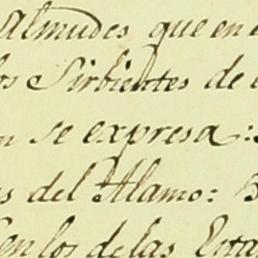 Almudes que en e
os Sirbientes de
n se expresa:
s del Alamo: B
en los de las Esta